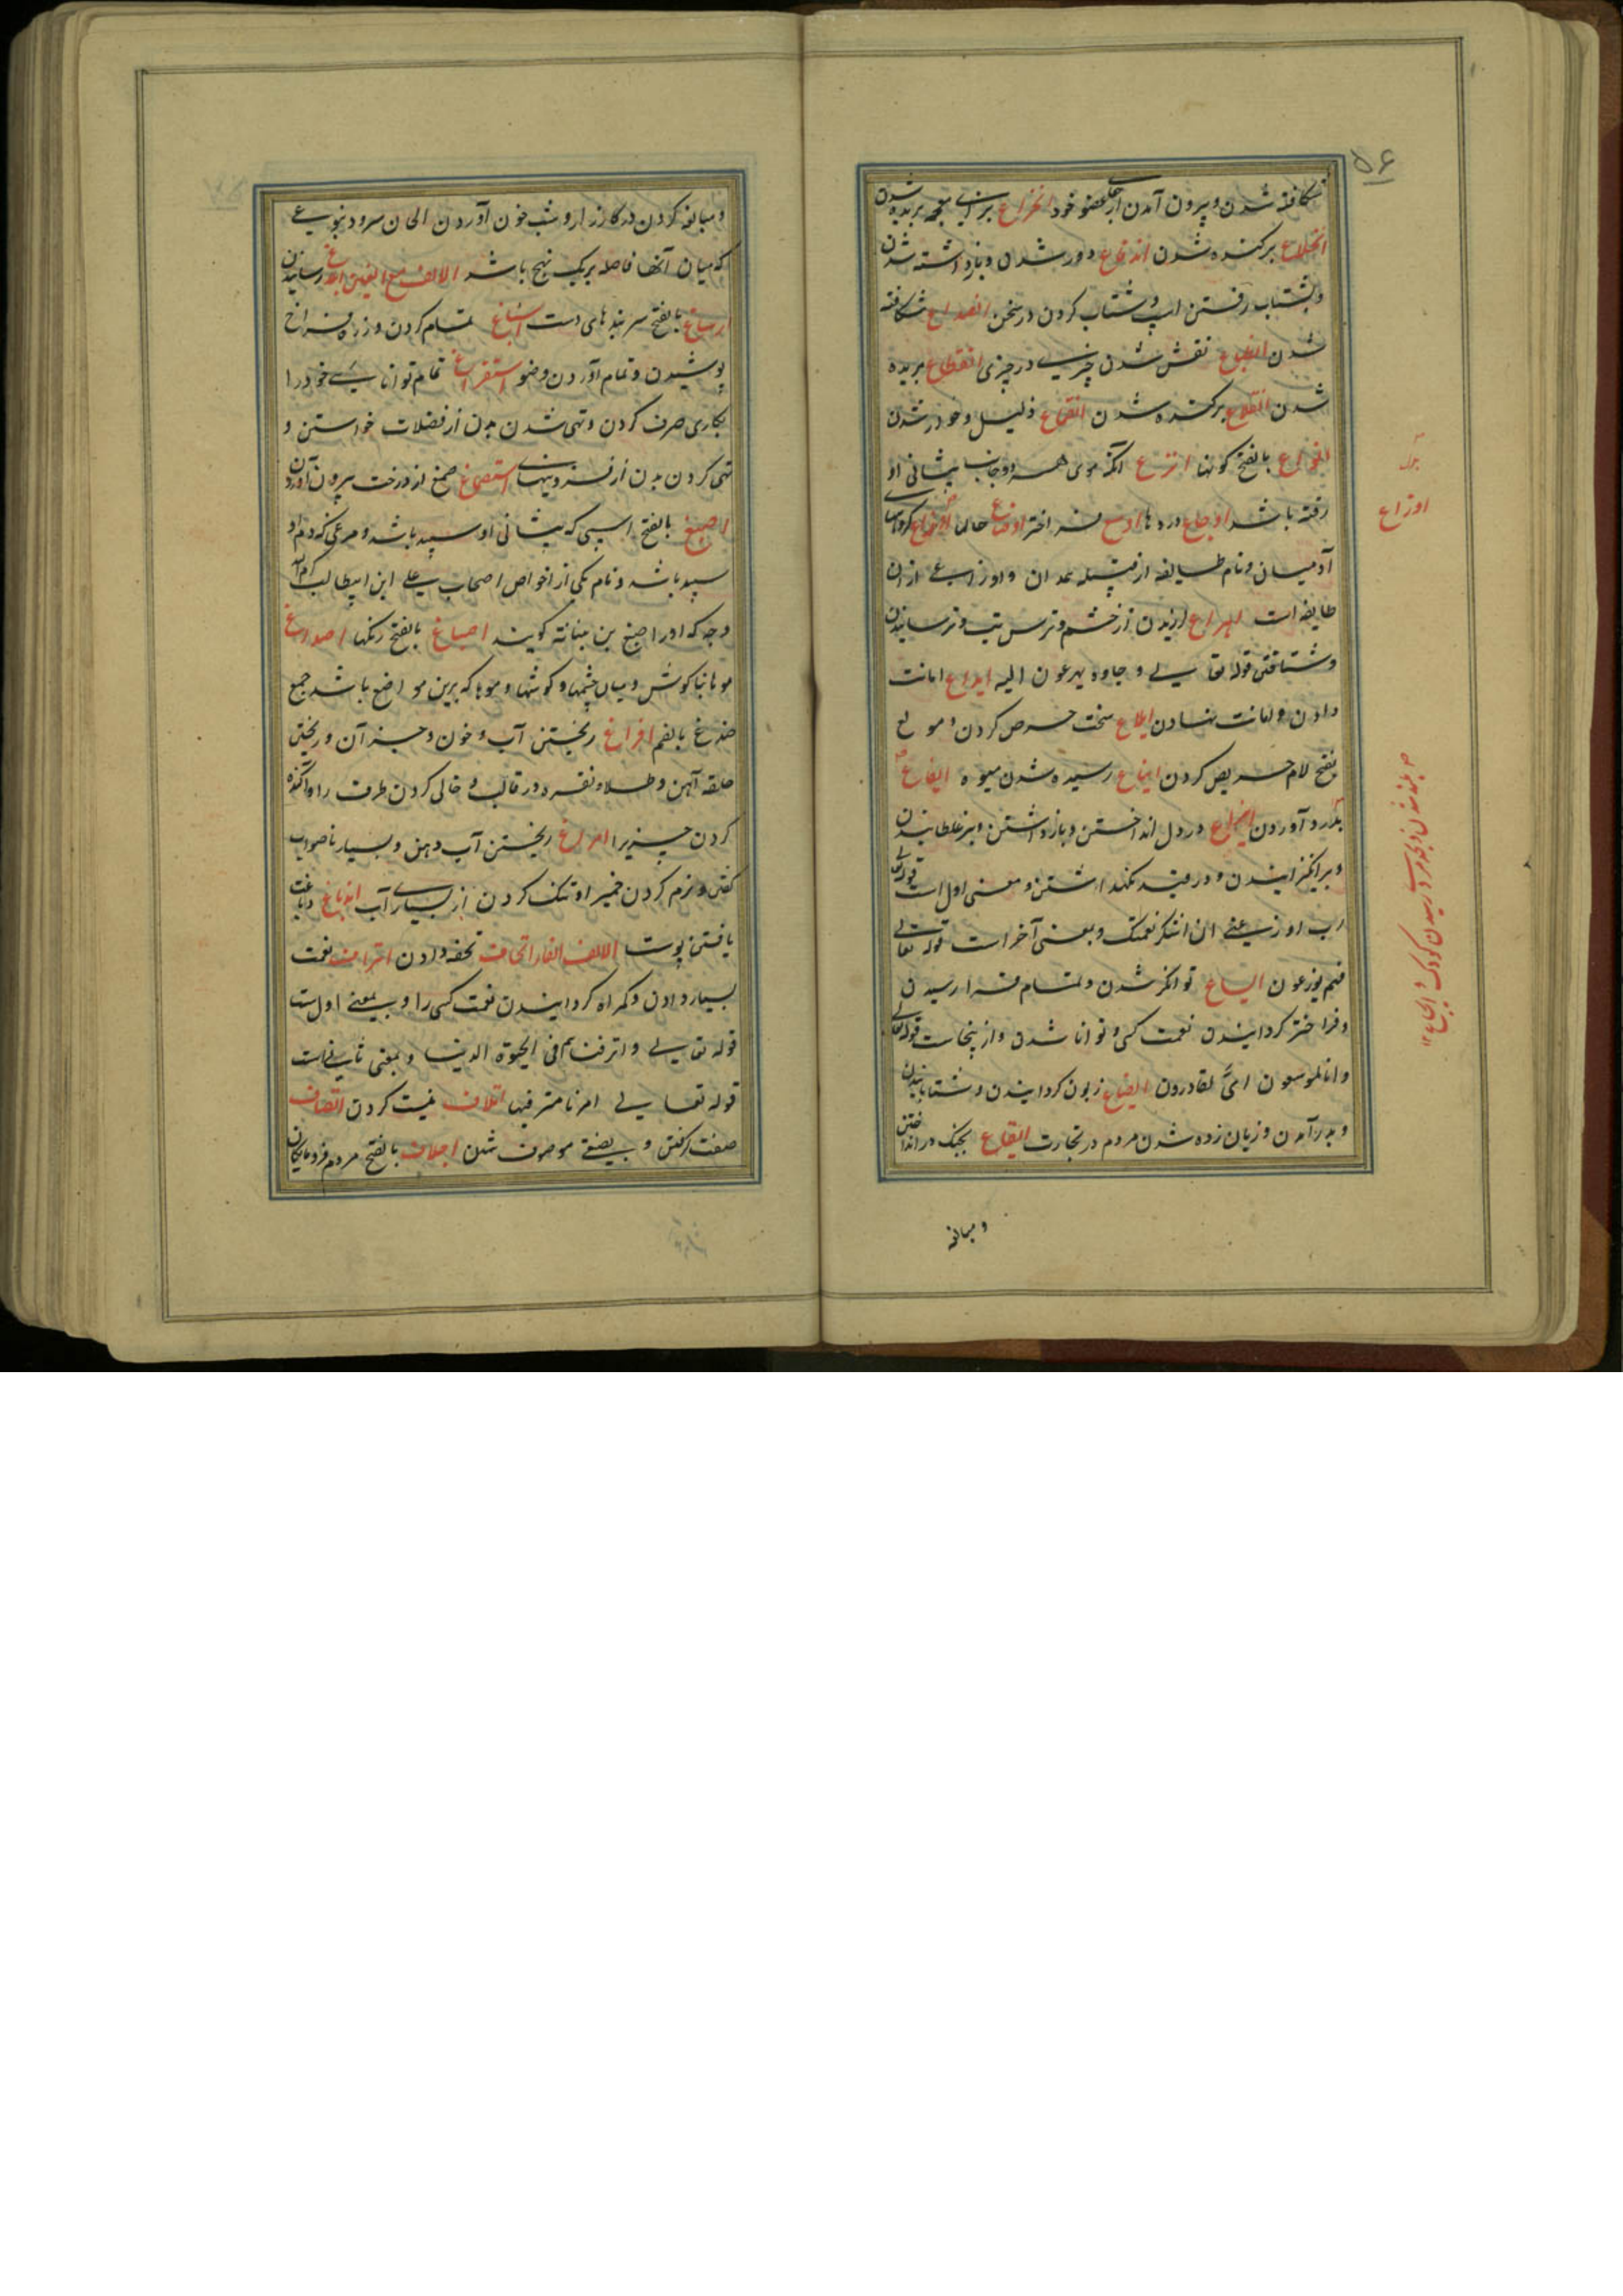 ۵۶
شکافته شدن و بیرون آمدن از جای عضو خود انخزاع بزای معجمه بریده شدن
انخلاع برکنده شدن اندفاع دور شدن و بازداشته شدن
و بشتاب رفتن اسپ و شتاب کردن در سخن انصداع شکافته
شدن انطباع نقش شدن چیزی در چیزی انقطاع بریده
شدن انقلاع برکنده شدن انقماع ذلیل و خورد شدن
انواع بالفتح کونها انزع آنکه موی هر دو جانب پیشانی او
رفته باشد اوجاع دردها اوسع فراختر اوضاع حالها اوزاع کروهای
آدمیان و نام طایفه از قبیله همدان و اوزاعی ازان
طایفه است اهراع لرزیدن از خشم و ترس و تب و ترسانیدن
و شتافتن قوله تعالی و جاءه یهرعون الیه ایداع امانت
دادن و امانت نهادن ایلاع سخت حرص کردن و مولع
بفتح لام حریص کردن ایناع رسیده شدن میوه ایفاع
بدرد آوردن ایزاع در دل انداختن و بازداشتن و برغلطانیدن
و برانکیزانیدن و در قید نکهداشتن و معنی اول است قوله تعالی
رب اوزعنی ان اشکر نعمتک و بمعنی آخر است قوله تعالی
فهم یوزعون ایساع توانکر شدن و بتمام فرا رسیدن
و فراختر کردانیدن نعمت کسی و توانا شدن و ازینجاست قوله تعالی
و انا لموسعون ای لقادرون ایضاع زبون کردانیدن و شتابانیدن
و بدرآمدن و زیان زده شدن مردم در تجارت ایقاع بجنک در انداختن
اوزاع
و مبالغه
و مبالغه کردن در کارزار و شب خون آوردن الحان سرود بنوعی
که میان آنها فاصله بریک نهج باشد الالف مع الغین ابلاغ رسانیدن
ارساغ بالفتح سربندهای دست اسباغ تمام کردن و زره فراخ
پوشیدن و تمام آوردن وضو استفراغ تمام توانایی خود را
بکاری صرف کردن و تهی شدن بدن از فضلات خواستن و
تهی کردن بدن از فزونیها استصماغ صمغ از درخت بیرون آوردن
اصبغ بالفتح اسپی که پیشانی او سپید باشد و مرغی که دم او
سپید باشد و نام یکی از خواص اصحاب علی ابن ابیطالب کرم الله
وجه که او را اصبغ بن نباته کویند اصباغ بالفتح رنکها اصداغ
مو بناکوش و میان چشمها و کوشها و موها که برین مواضع باشد جمع
صدغ بالضم افراغ ریختن آب و خون و جز آن و ریختن
حلقه آهن و طلا و نقره در قالب و خالی کردن ظرف را و آکنده
کردن چیزیرا امراغ ریختن آب دهن و بسیار ناصواب
گفتن و نرم کردن خمیر او تنک کردن از بسیاری آب اندباغ دباغت
یافتن پوست الالف مع الفاء اتحاف تحفه دادن اتراف نعمت
بسیار دادن و کمراه کردانیدن نعمت کسی را و بمعنی اول ست
قوله تعالی و اترفناهم فی الحیوة الدنیا و بمعنی ثانی ست
قوله تعالی امرنا مترفیها اتلاف نیست کردن اتصاف
صفت کرفتن و بصفتی موصوف شدن اجلاف بالفتح مردم فرومایکان